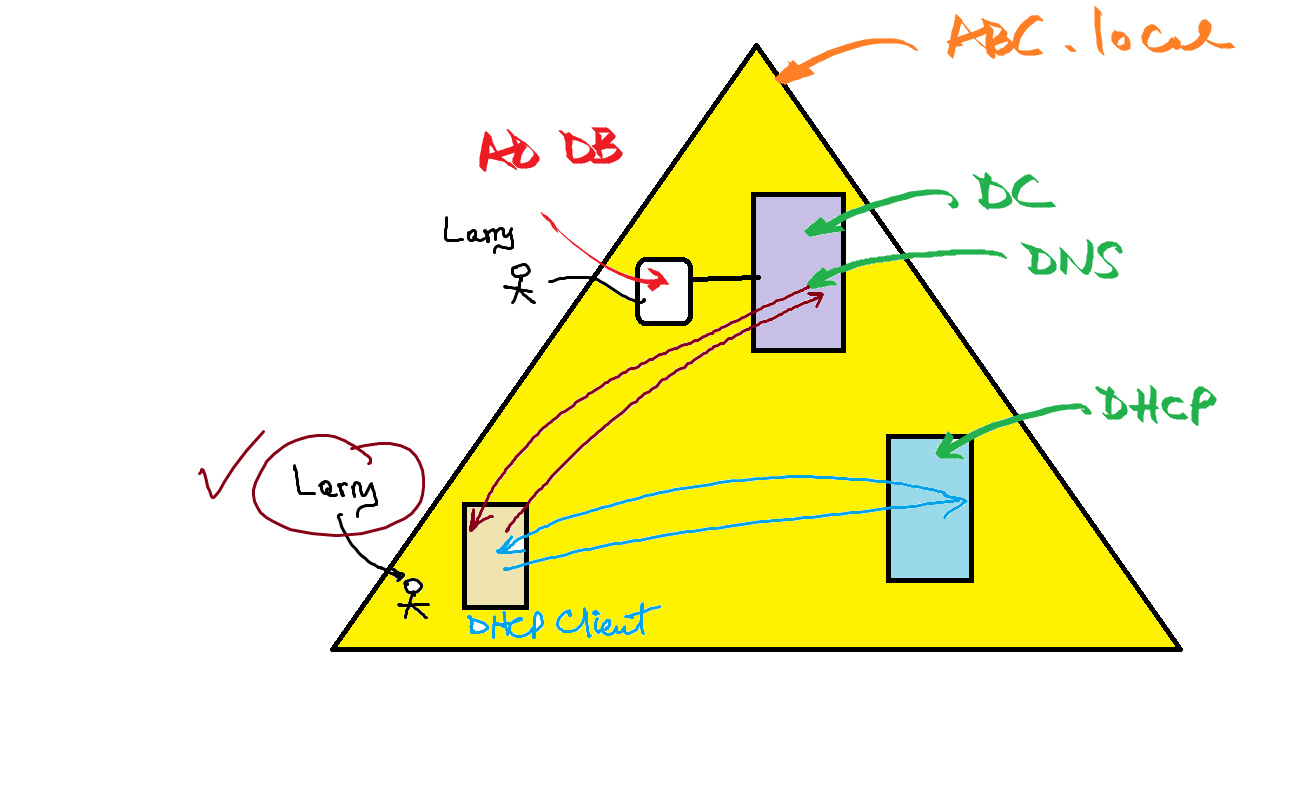 ABC.local
AD DB
DC
Larry
DNS
DHCP
Larry
DHCP Client